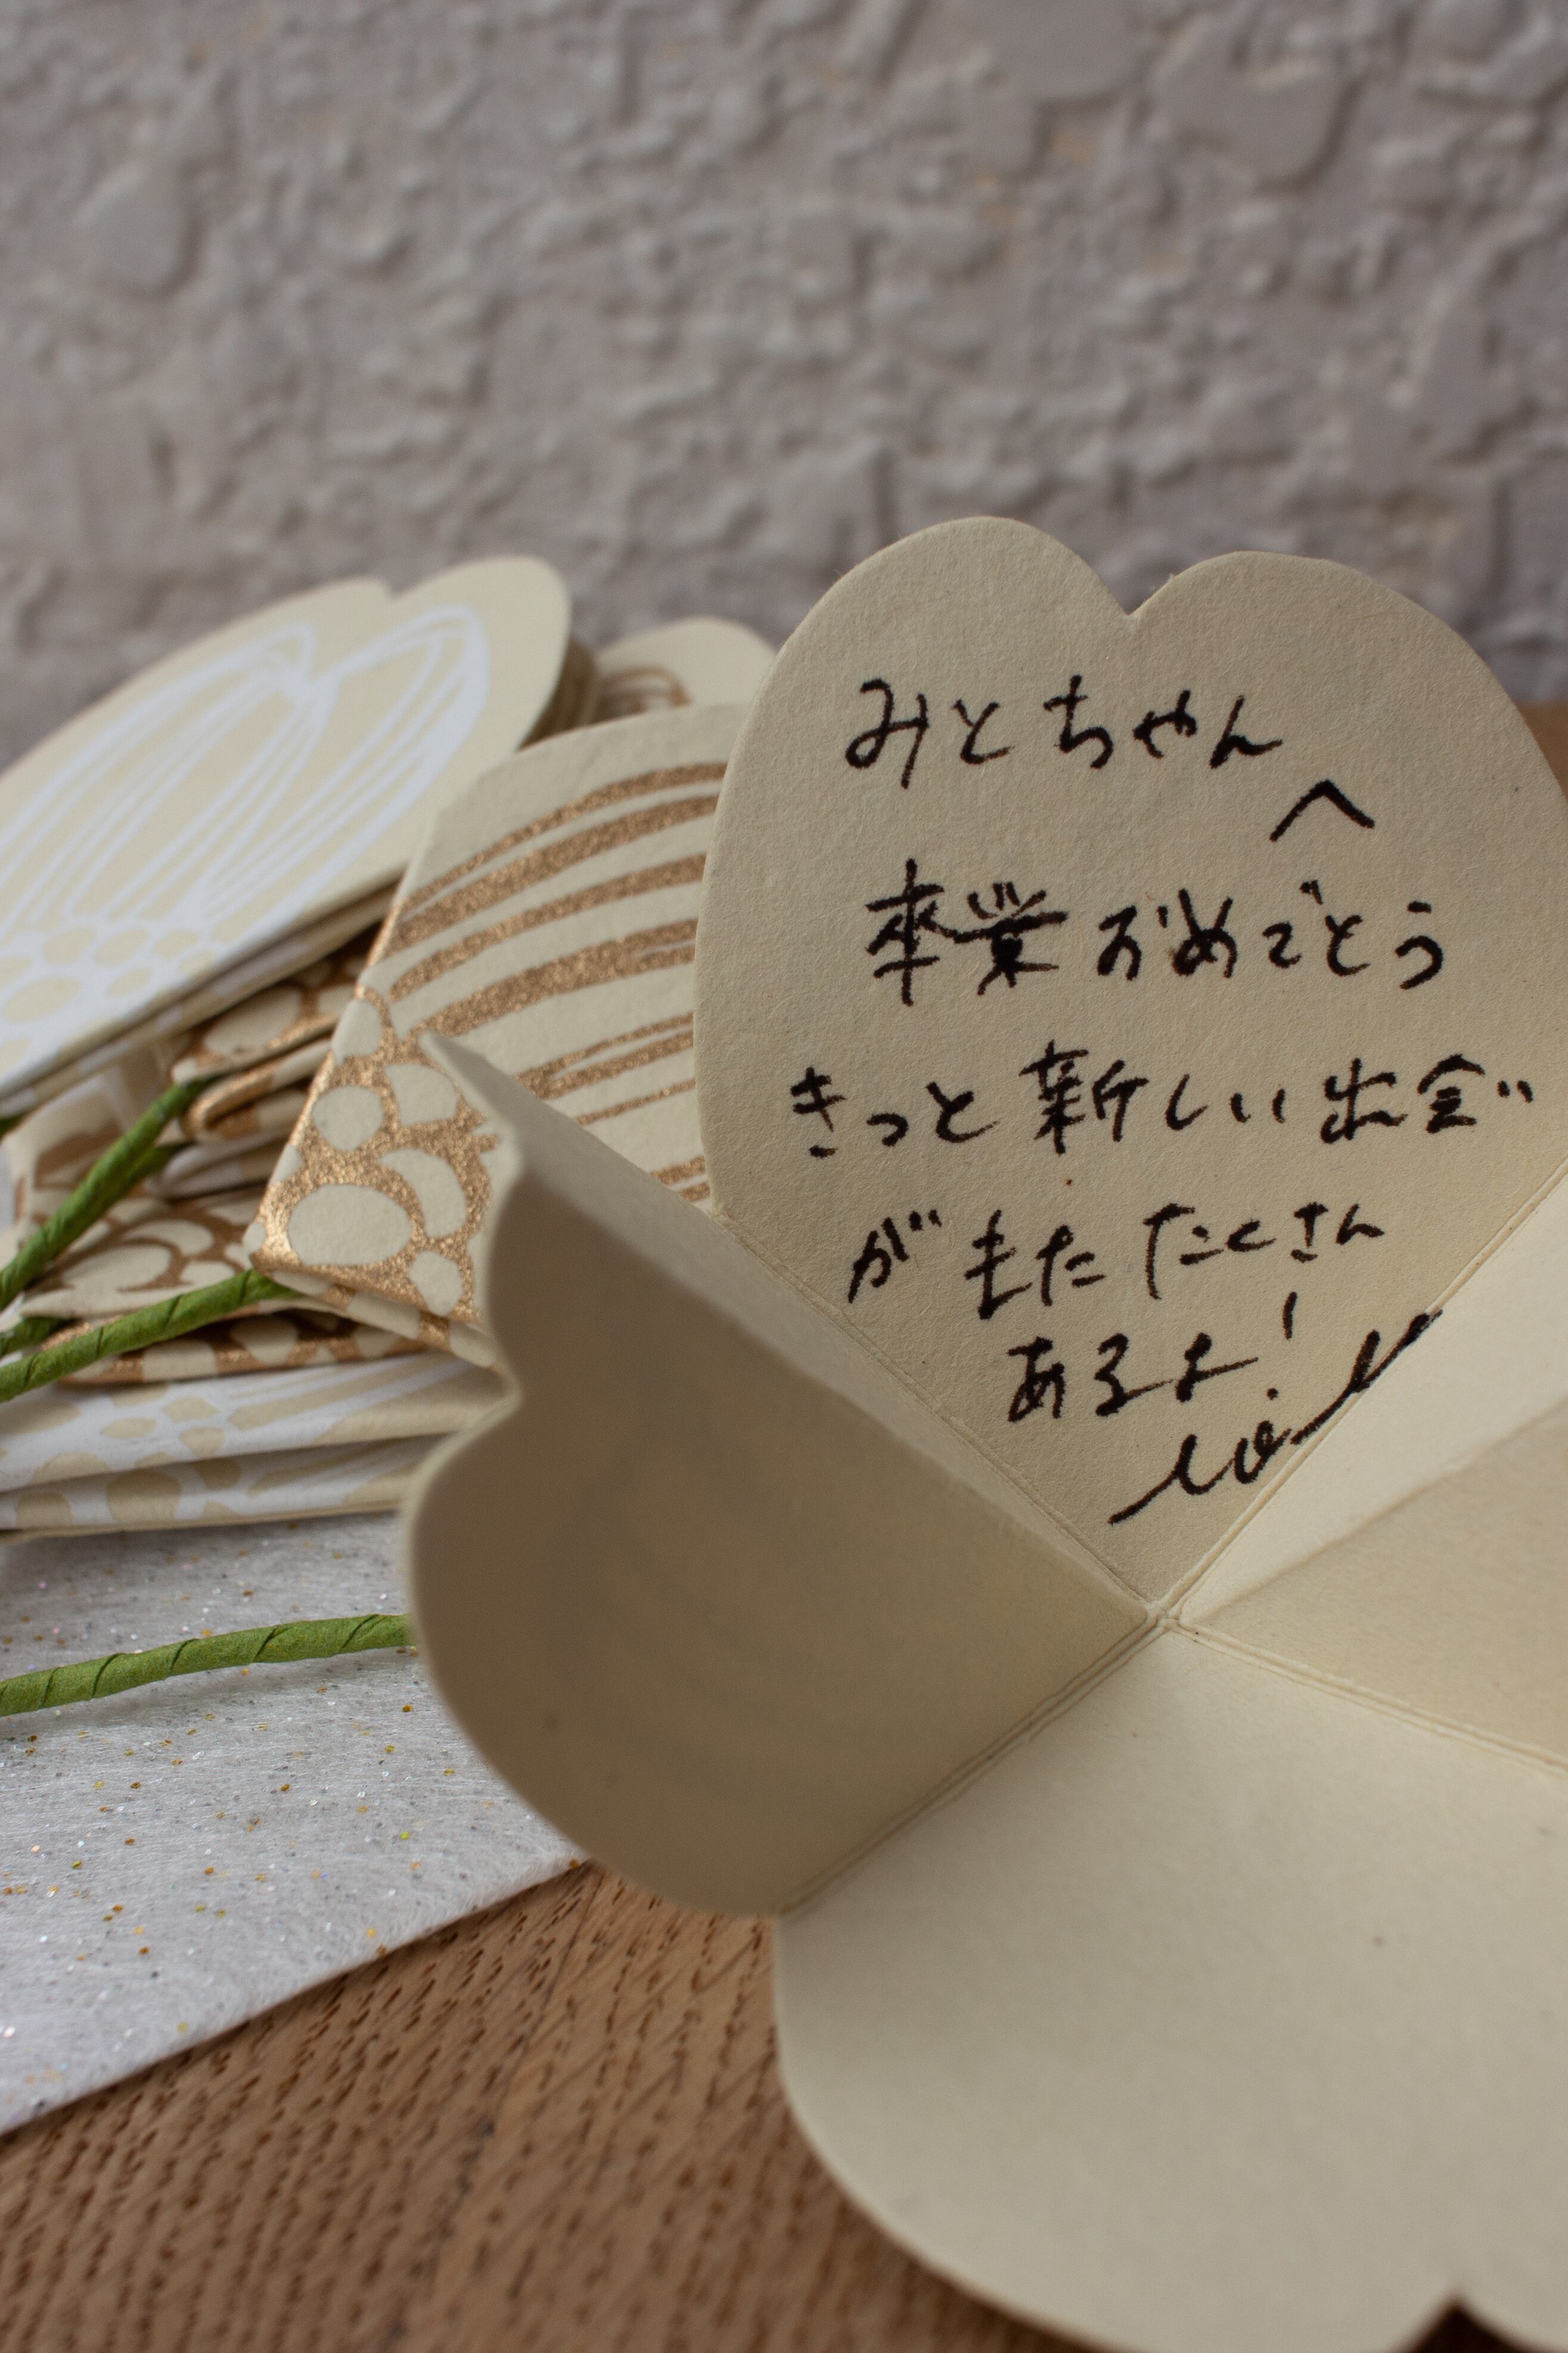 みとちゃん
へ
卒業おめでとう
きっと新しい出会い
がまたたくさん
あるよ!